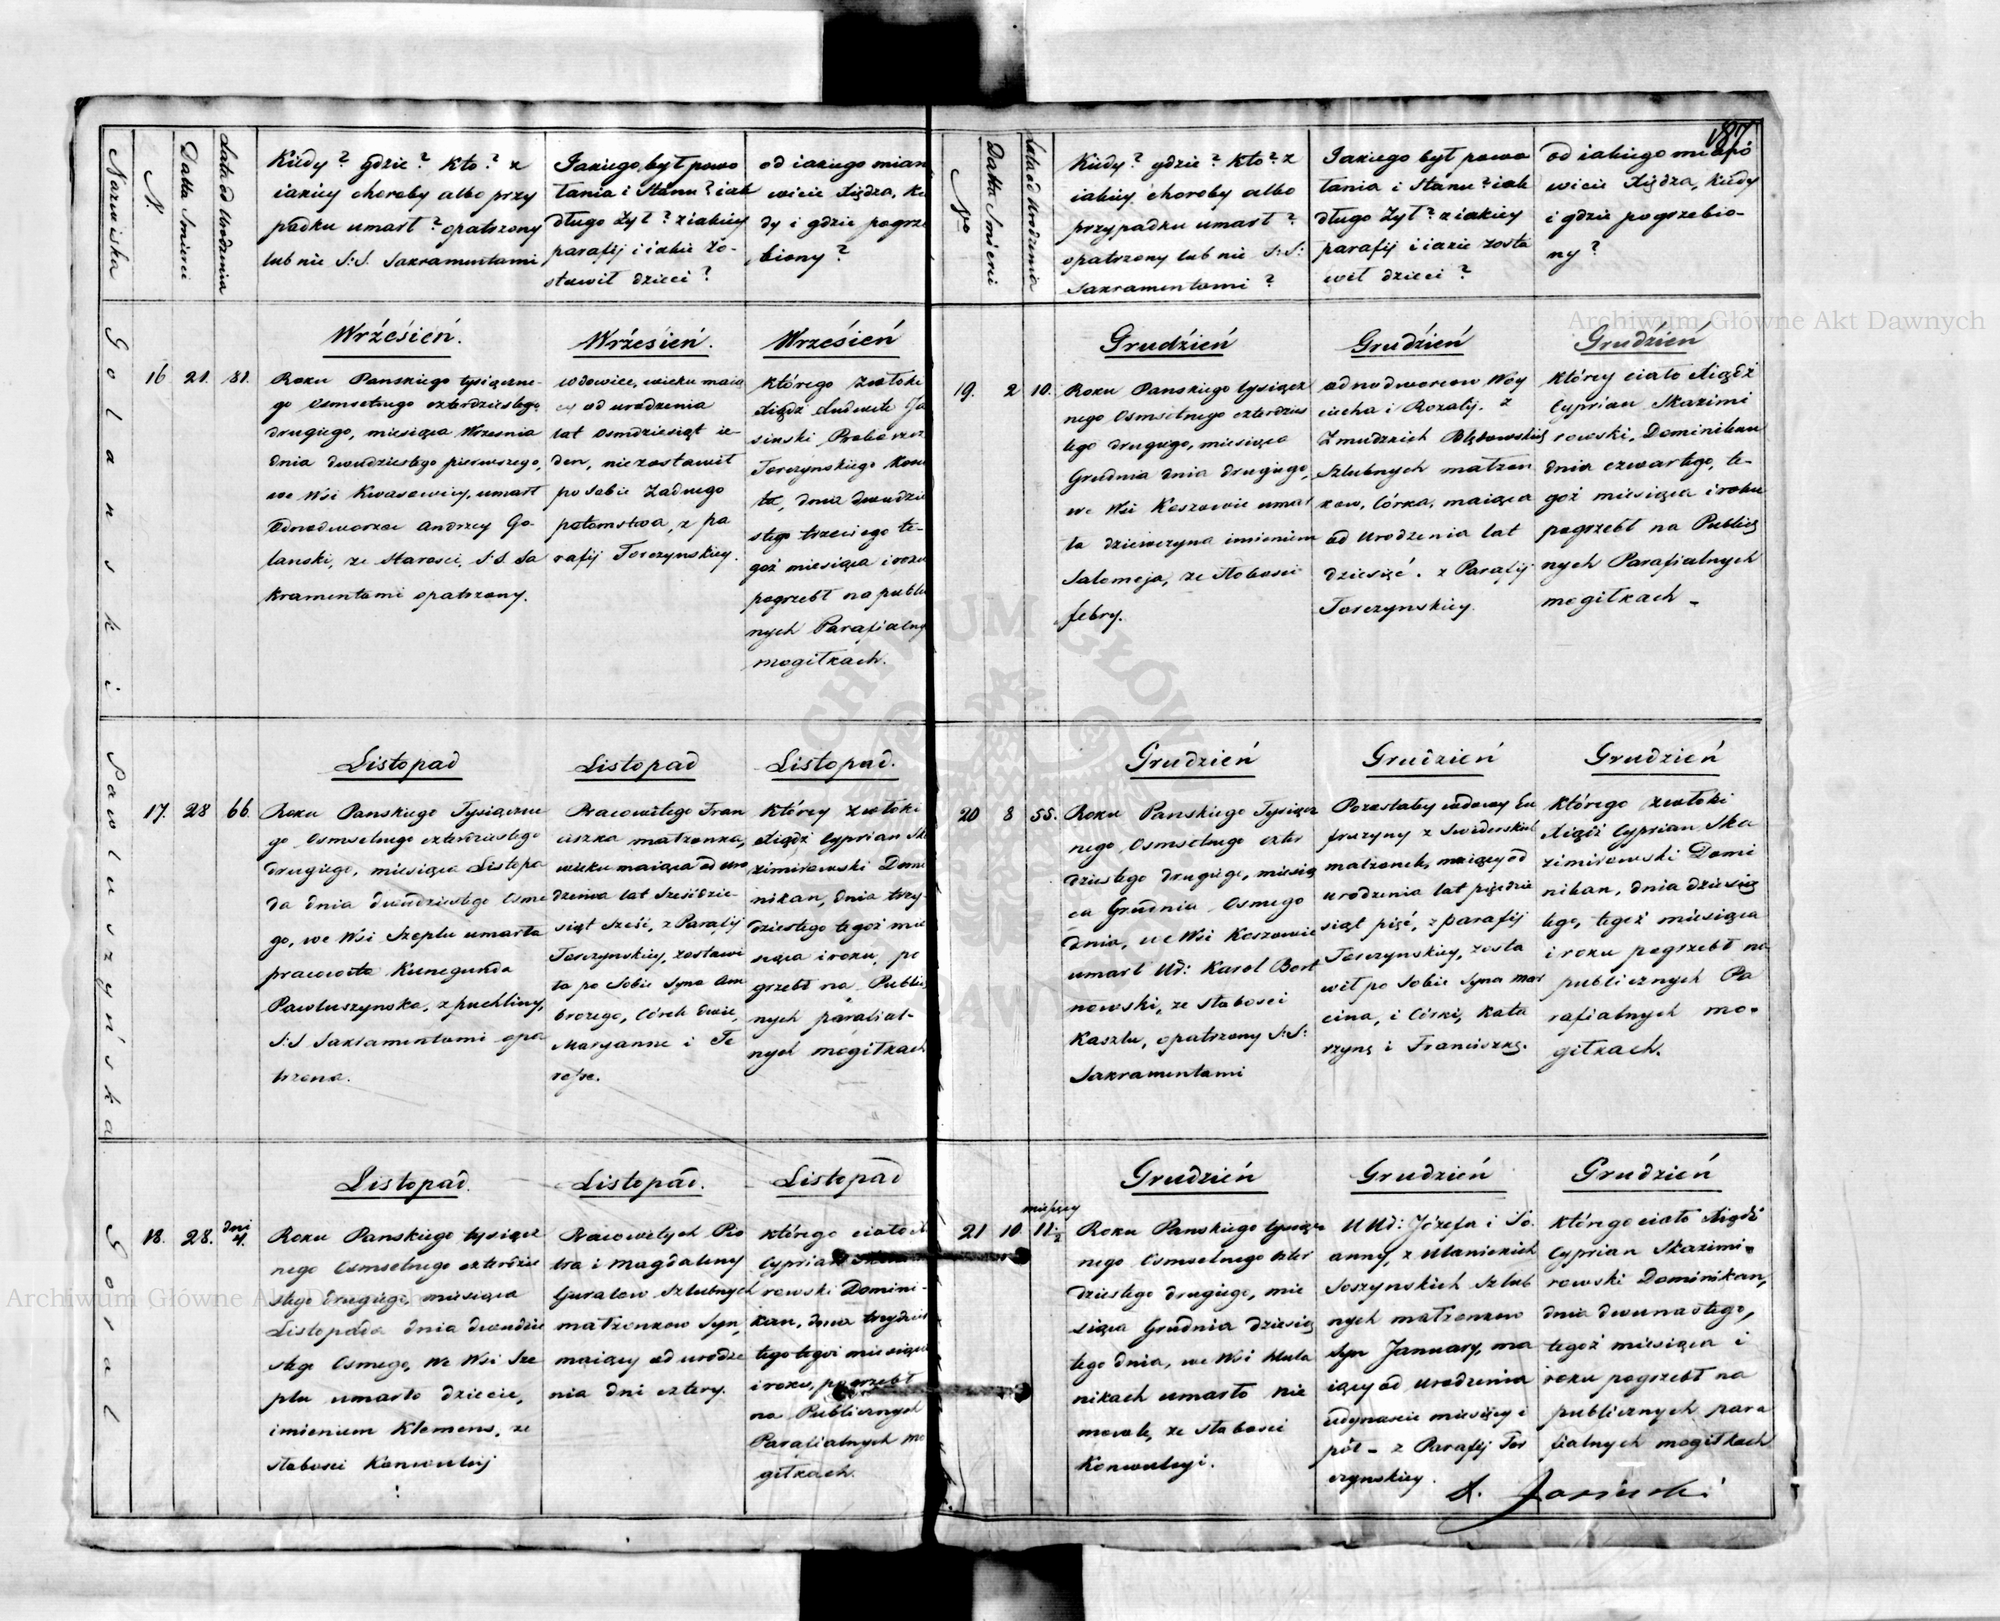 Nazwiska
N.
Datta Śmierci
Lata od Urodzenia
Kiedy? gdzie? kto? z
iakiey choroby albo przy
padku umarł? opatrzony
lub nie S:S. Sakramentami
Jakiego był powo
łania i Stanu? iak
długo żył? z iakiey
parafij i iakie zo-
stawił dzieci?
od iakiego mian
wicie Xiędza, Kie
dy i gdzie pogrze
biony?
Golanski
16
21.
81.
Wrźesień.
Roku Panskiego tysiączne-
go Osmsetnego czterdziestego
drugiego, miesiąca Wrzesnia
dnia dwudziestego pierwszego,
we Wsi Kwasowicy, umarł
Odnodworzec Andrzey Go-
lanski, ze Starosci, S.S. Sa
kramentami opatrzony.
Wrźesień.
wdowiec, wieku maią
cy od urodzenia
lat Osmdziesiąt ie-
den, niezostawił
po sobie żadnego
potomstwa, z pa
rafij Torczynskiey.
Wrześień
którego zwłoki
Xiądz Ludwik Ja
sinski Proboszcz
Torczynskiego Kosc
ła, dnia dwudzie
stego trzeciego te-
goż miesiąca i roku
pogrzebł na publi
nych Parafialny
mogiłkach.
Pawluszyńska
17.
28
66.
Listopad
Roku Panskiego Tysiączne
go Osmsetnego czterdziestego
drugiego, miesiąca Listopa
da dnia dwudziestego Osme
go, we Wsi Szeplu umarła
pracowita Kunegunda
Pawluszynska, z puchliny,
S:S Sakramentami opa
trzona.
Listopad
Pracowitego Fran
ciszka małzonka,
wieku maiąca od uro
dzenia lat Sześćdzie-
siąt Sześć, z Parafij
Torczynskiey, zostawi
ła po Sobie Syna Am
brozego, Córek dwie,
Maryannę i Te
resę.
Listopad.
którey zwłoki
Xiądź Cyprian Sk
zimirowski Domi
nikan, dnia trzy-
dziestego tegoż mie
siąca i roku, po
grzebł na Public
nych parafial-
nych mogiłkach
Goral
18.
28.
dni
4.
Listopad.
Roku Panskiego tysiącz
nego Osmsetnego czterdzie
stego drugiego, miesiąca
Listopada dnia dwudzie
stego Osmego, we Wsi Sze
plu umarło dziecie,
imieniem Klemens, ze
słabosci Konwulsij
Listopad.
Pracowitych Pio
tra i Magdaleny
Guralow Szlubnych
małzonkow Syn,
maiący od urodze
nia dni cztery.
Listopad
którego ciało X
Cyprian
rowski Domini-
kan, dnia trzydzies
tego tegoż miesiąca
i roku, pogrzebł
na Publicznych
Parafialnych mo
giłkach.
87
No
Datta Śmierci
Lata od Urodzenia
Kiedy? gdzie? kto? z
iakiey choroby albo
przypadku umarł?
opatrzony lub nie S:S:
Sakramentami?
Jakiego był powo
łania i Stanu? iak
długo żył? z iakiey
parafij i iakie zosta
wił dzieci?
od iakiego miano
wicie Xiędza, Kiedy
i gdzie pogrzebio-
ny?
19.
2
10.
Grudźień
Roku Panskiego tysiącz
nego Osmsetnego czterdzies
tego drugiego, miesiąca
Grudnia dnia drugiego,
we Wsi Koszowie umar
ła dziewczyna imieniem
Salomeja, ze słabosci
febry.
Grudźień
odnodworcow Woy
ciecha i Rozalij. z
Zmudzkich Błędowskich
Szlubnych małzon
kow, Córka, maiąca
od Urodzenia lat
dziesięć. z Parafij
Torczynskiey.
Grudźień
którey ciało Xiądź
Cyprian Skazimi
rowski, Dominikan
dnia czwartego, te-
goż miesiąca i roku
pogrzebł na Publicz
nych Parafialnych
mogiłkach -
20
8
55.
Grudzień
Roku Panskiego Tysiącz
nego Osmsetnego czter
dziestego drugiego, miesią
ca Grudnia Osmego
dnia, we Wsi Koszowie
umarł Ud: Karol Bort
nowski, ze słabosci
Kaszlu, opatrzony S:S:
Sakramentami
Grudzień
Pozostały wdowy Eu
frozyny z Swiderskich
małzonek, maiący od
urodzenia lat pięćdzie
siąt pięć, z parafij
Torczynskiey, zosta
wił po Sobie Syna Mar
cina, i Córki, Kata
rzynę i Franciszkę.
Grudzień
którego zwłoki
Xiądź Cyprian Ska
zimirowski Domi
nikan, dnia dziesią
tego, tegoż miesiąca
i roku pogrzebł na
publicznych Pa
rafialnych mo-
giłkach.
21
10.
miesięcy
11 1/2
Grudzień
Roku Panskiego tysiącz
nego Osmsetnego czter
dziestego drugiego, mie
siąca Grudnia dziesią
tego dnia, we Wsi Ula
nikach umarło nie
mowle, ze słabosci
Konwulsyi.
Grudzień
UUd: Józefa i Jo.
anny, z Ulanickich
Soszynskich Szlub
nych małzonkow
Syn January, ma
iący od urodzenia
iedynascie miesięcy i
pół - z Parafij Tor
czynskiey.
Grudzień
którego ciało Xiądź
Cyprian Skazimi-
rowski Dominikan,
dnia dwunastego,
tegoż miesiąca i
roku pogrzebł na
publicznych para
fialnych mogiłkach
X. Jasinski
Archiwum Główne Akt Dawnych
Archiwum Główne Akt Dawnych